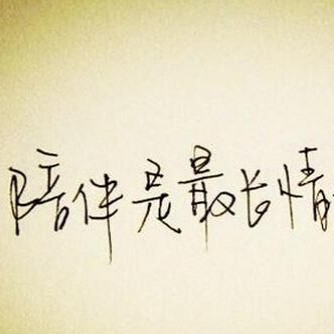 陪伴是最长情